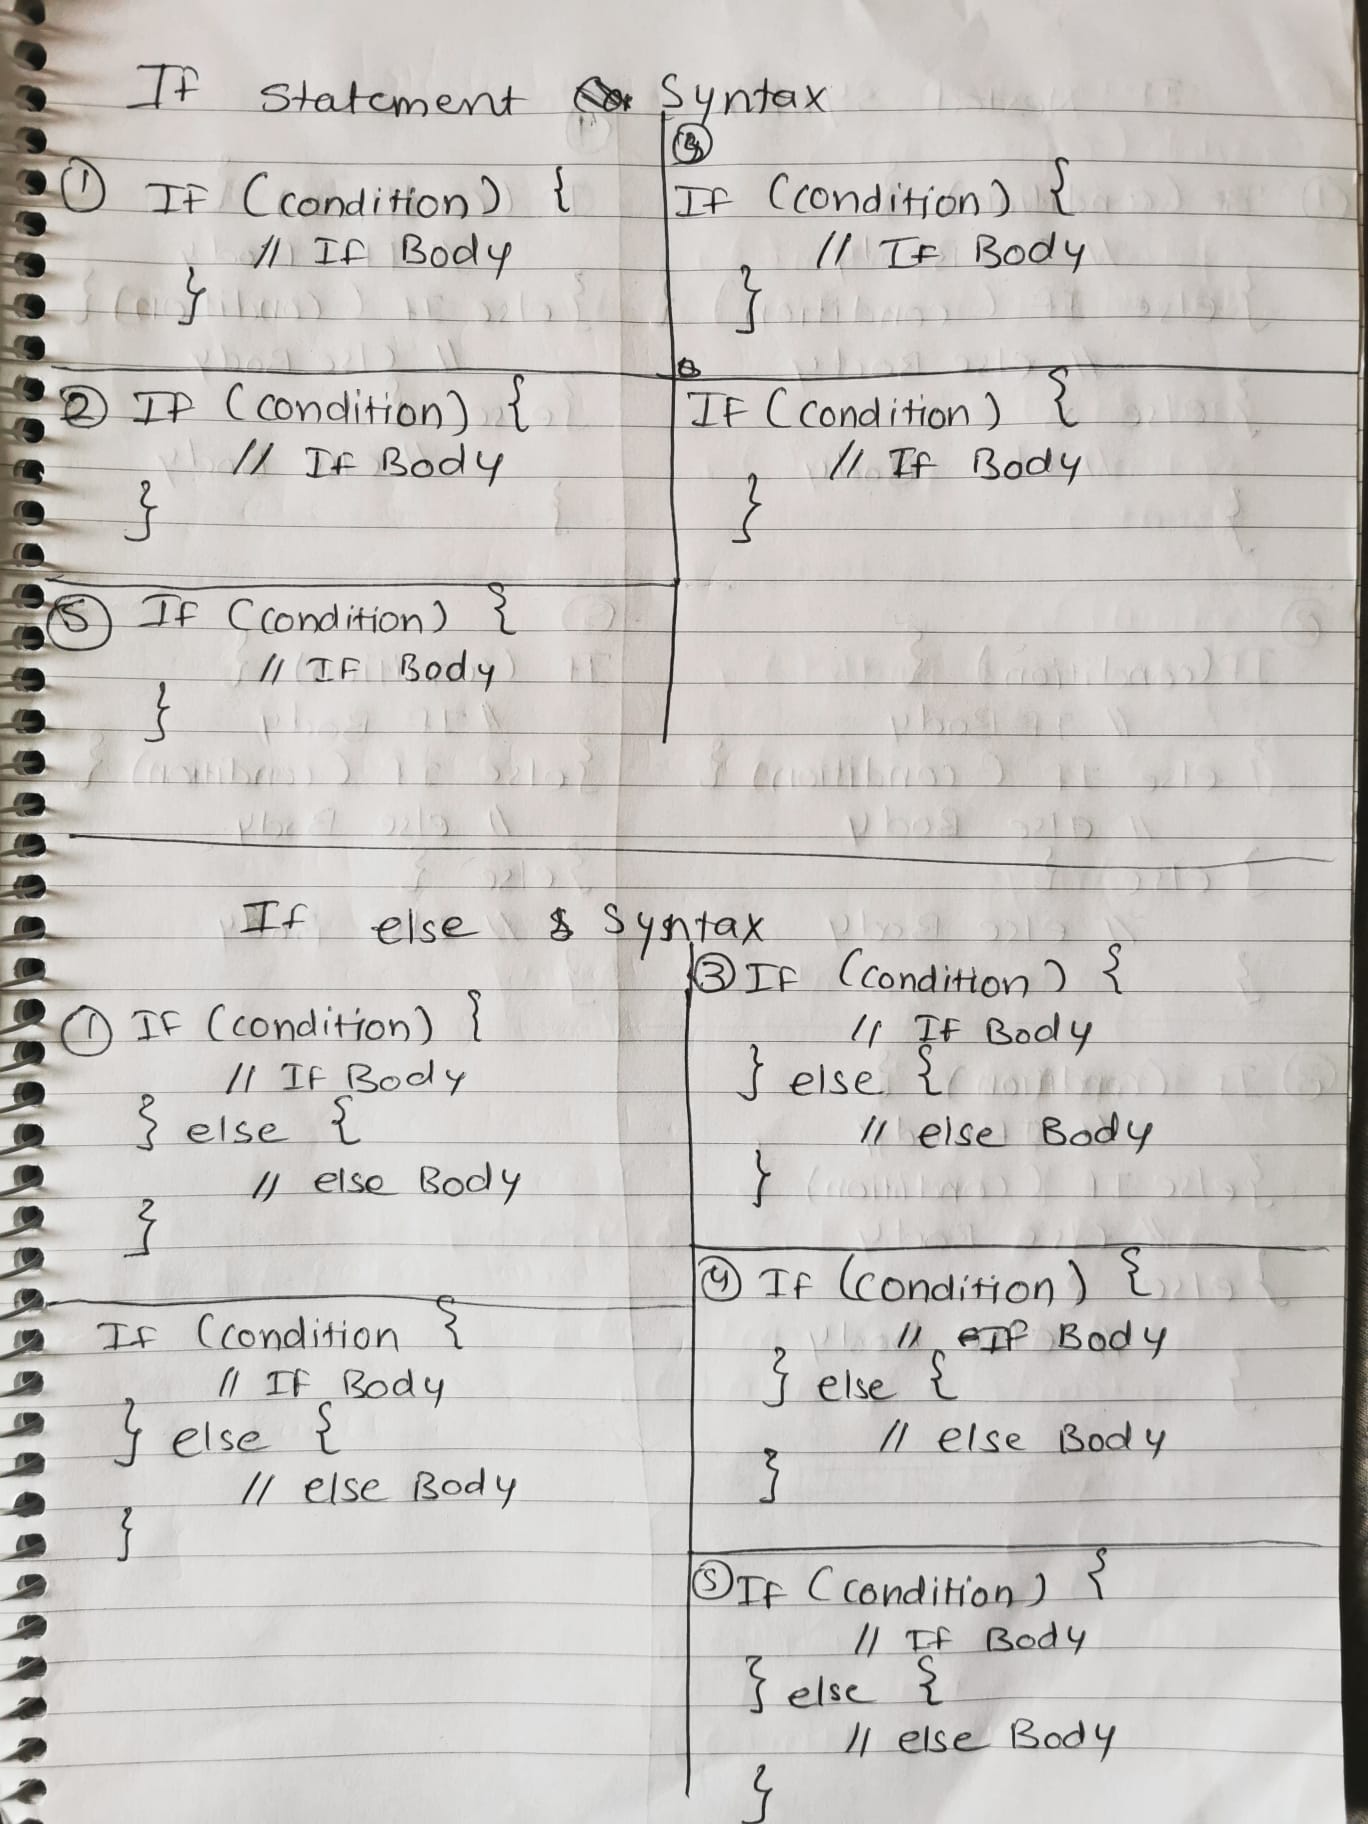 If statement Syntax
① If (condition) {
// If Body
}
② If (condition) {
// If Body
}
⑤ If (condition) {
// If Body
}
③
If (condition) {
// If Body
}
If (condition) {
// If Body
}
If else Syntax
① If (condition) {
// If Body
} else {
// else Body
}
If (condition {
// If Body
} else {
// else Body
}
③ If (condition) {
// If Body
} else {
// else Body
}
④ If (condition) {
// If Body
} else {
// else Body
}
⑤ If (condition) {
// If Body
} else {
// else Body
}